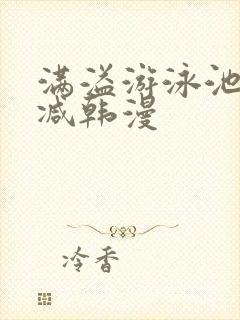 满溢游泳池
减韩漫
冷香